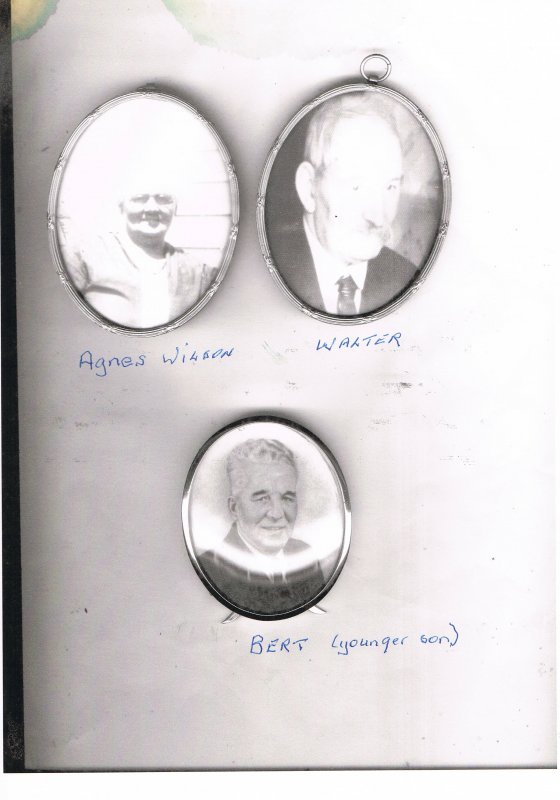 Agnes Wilson
WALTER
BERT (younger son)